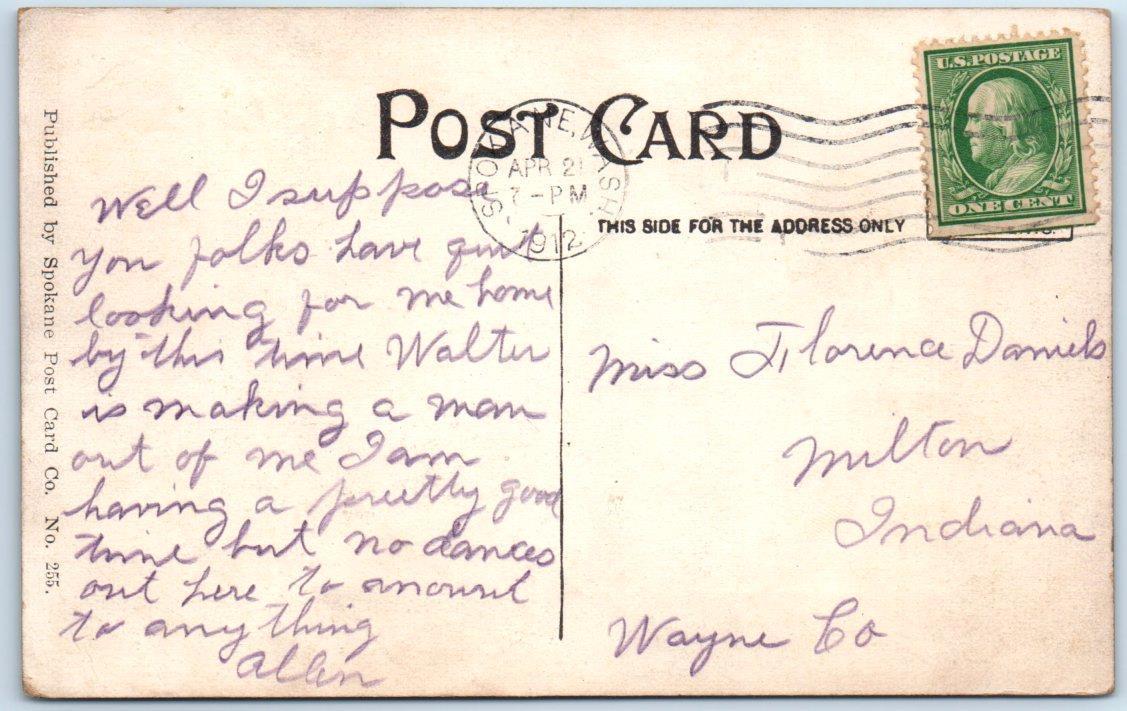 Published by Spokane Post Card Co. No. 255.
POST CARD
SPOKANE, WASH.
APR 21
7-PM
1912
U.S. POSTAGE
ONE CENT
THIS SIDE FOR THE ADDRESS ONLY
Well I suppose
you folks have quit
looking for me home
by this time Walter
is making a man
out of me I am
having a preetty good
time but no dances
out here to amount
to anything
Allen
Miss Florence Daniels
Milton
Indiana
Wayne Co